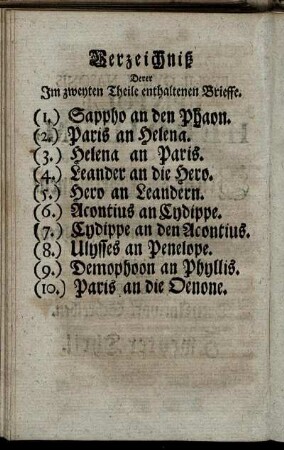 Verzeichniß
Derer
Im zweyten Theile enthaltenen Brieffe.
(1.) Sappho an den Phaon.
(2.) Paris an Helena.
(3.) Helena an Paris.
(4.) Leander an die Hero.
(5.) Hero an Leandern.
(6.) Acontius an Cydippe.
(7.) Cydippe an den Acontius.
(8.) Ulysses an Penelope.
(9.) Demophoon an Phyllis.
(10.) Paris an die Oenone.